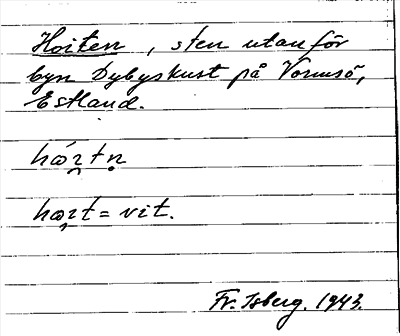 Hoiten, sten utanför
byn Dybyskust på Vormsö,
Estland.
hó̯ɪtn̥
ho̯ɪt = vit.
Fr. Isberg. 1943.